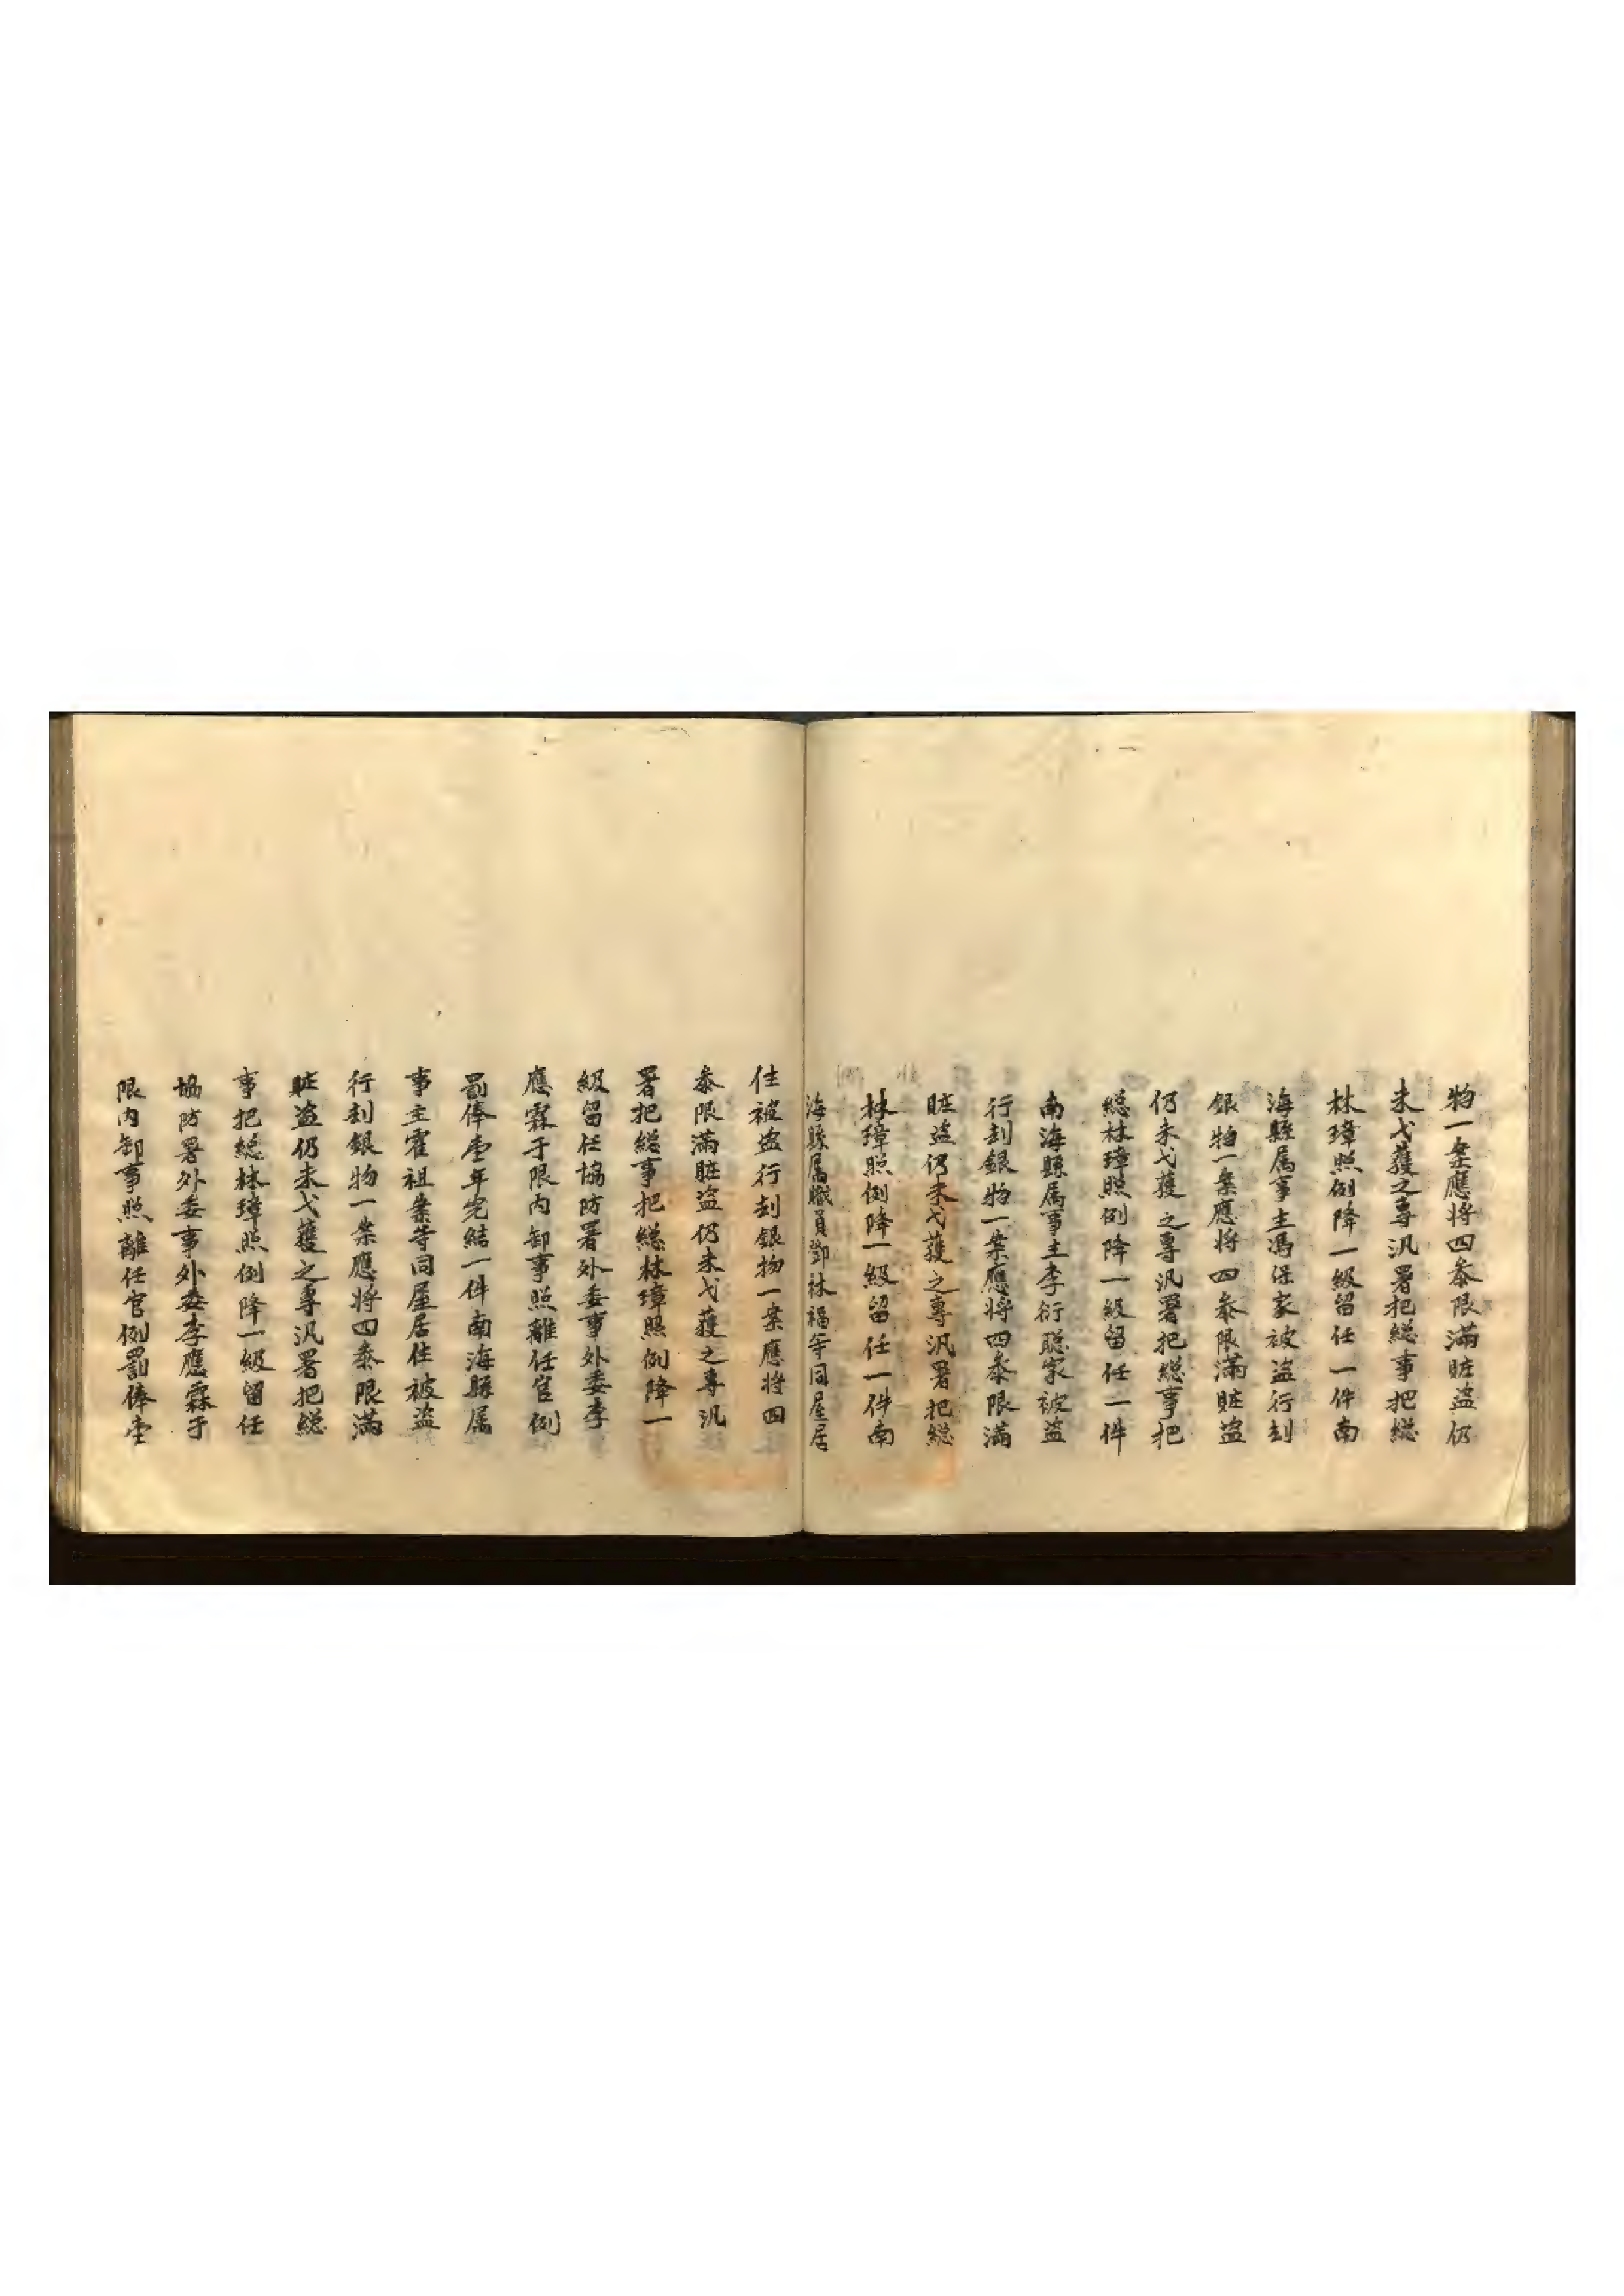 物一案應将四叅限滿賍盗仍
未弋獲之專汛署把総事把総
林璋照例降一級留任一件南
海縣属事主馮保家被盗行刦
銀物一案應将四叅限滿賍盗
仍未弋獲之專汛署把総事把
総林璋照例降一級留任一件
南海縣属事主李衍聡家被盗
行刦銀物一案應将四叅限滿
賍盗仍未弋獲之專汛署把総
林璋照例降一級留任一件南
海縣属職員鄧林福等同屋居
住被盗行刦銀物一案應将四
叅限滿賍盗仍未弋獲之專汛
署把総事把総林璋照例降一
級留任協防署外委事外委李
應霖于限内卸事照離任官例
罰俸壱年完結一件南海縣属
事主霍祖業等同屋居住被盗
行刦銀物一案應将四叅限滿
賍盗仍未弋獲之專汛署把総
事把総林璋照例降一級留任
協防署外委事外委李應霖于
限内卸事照離任官例罰俸壱